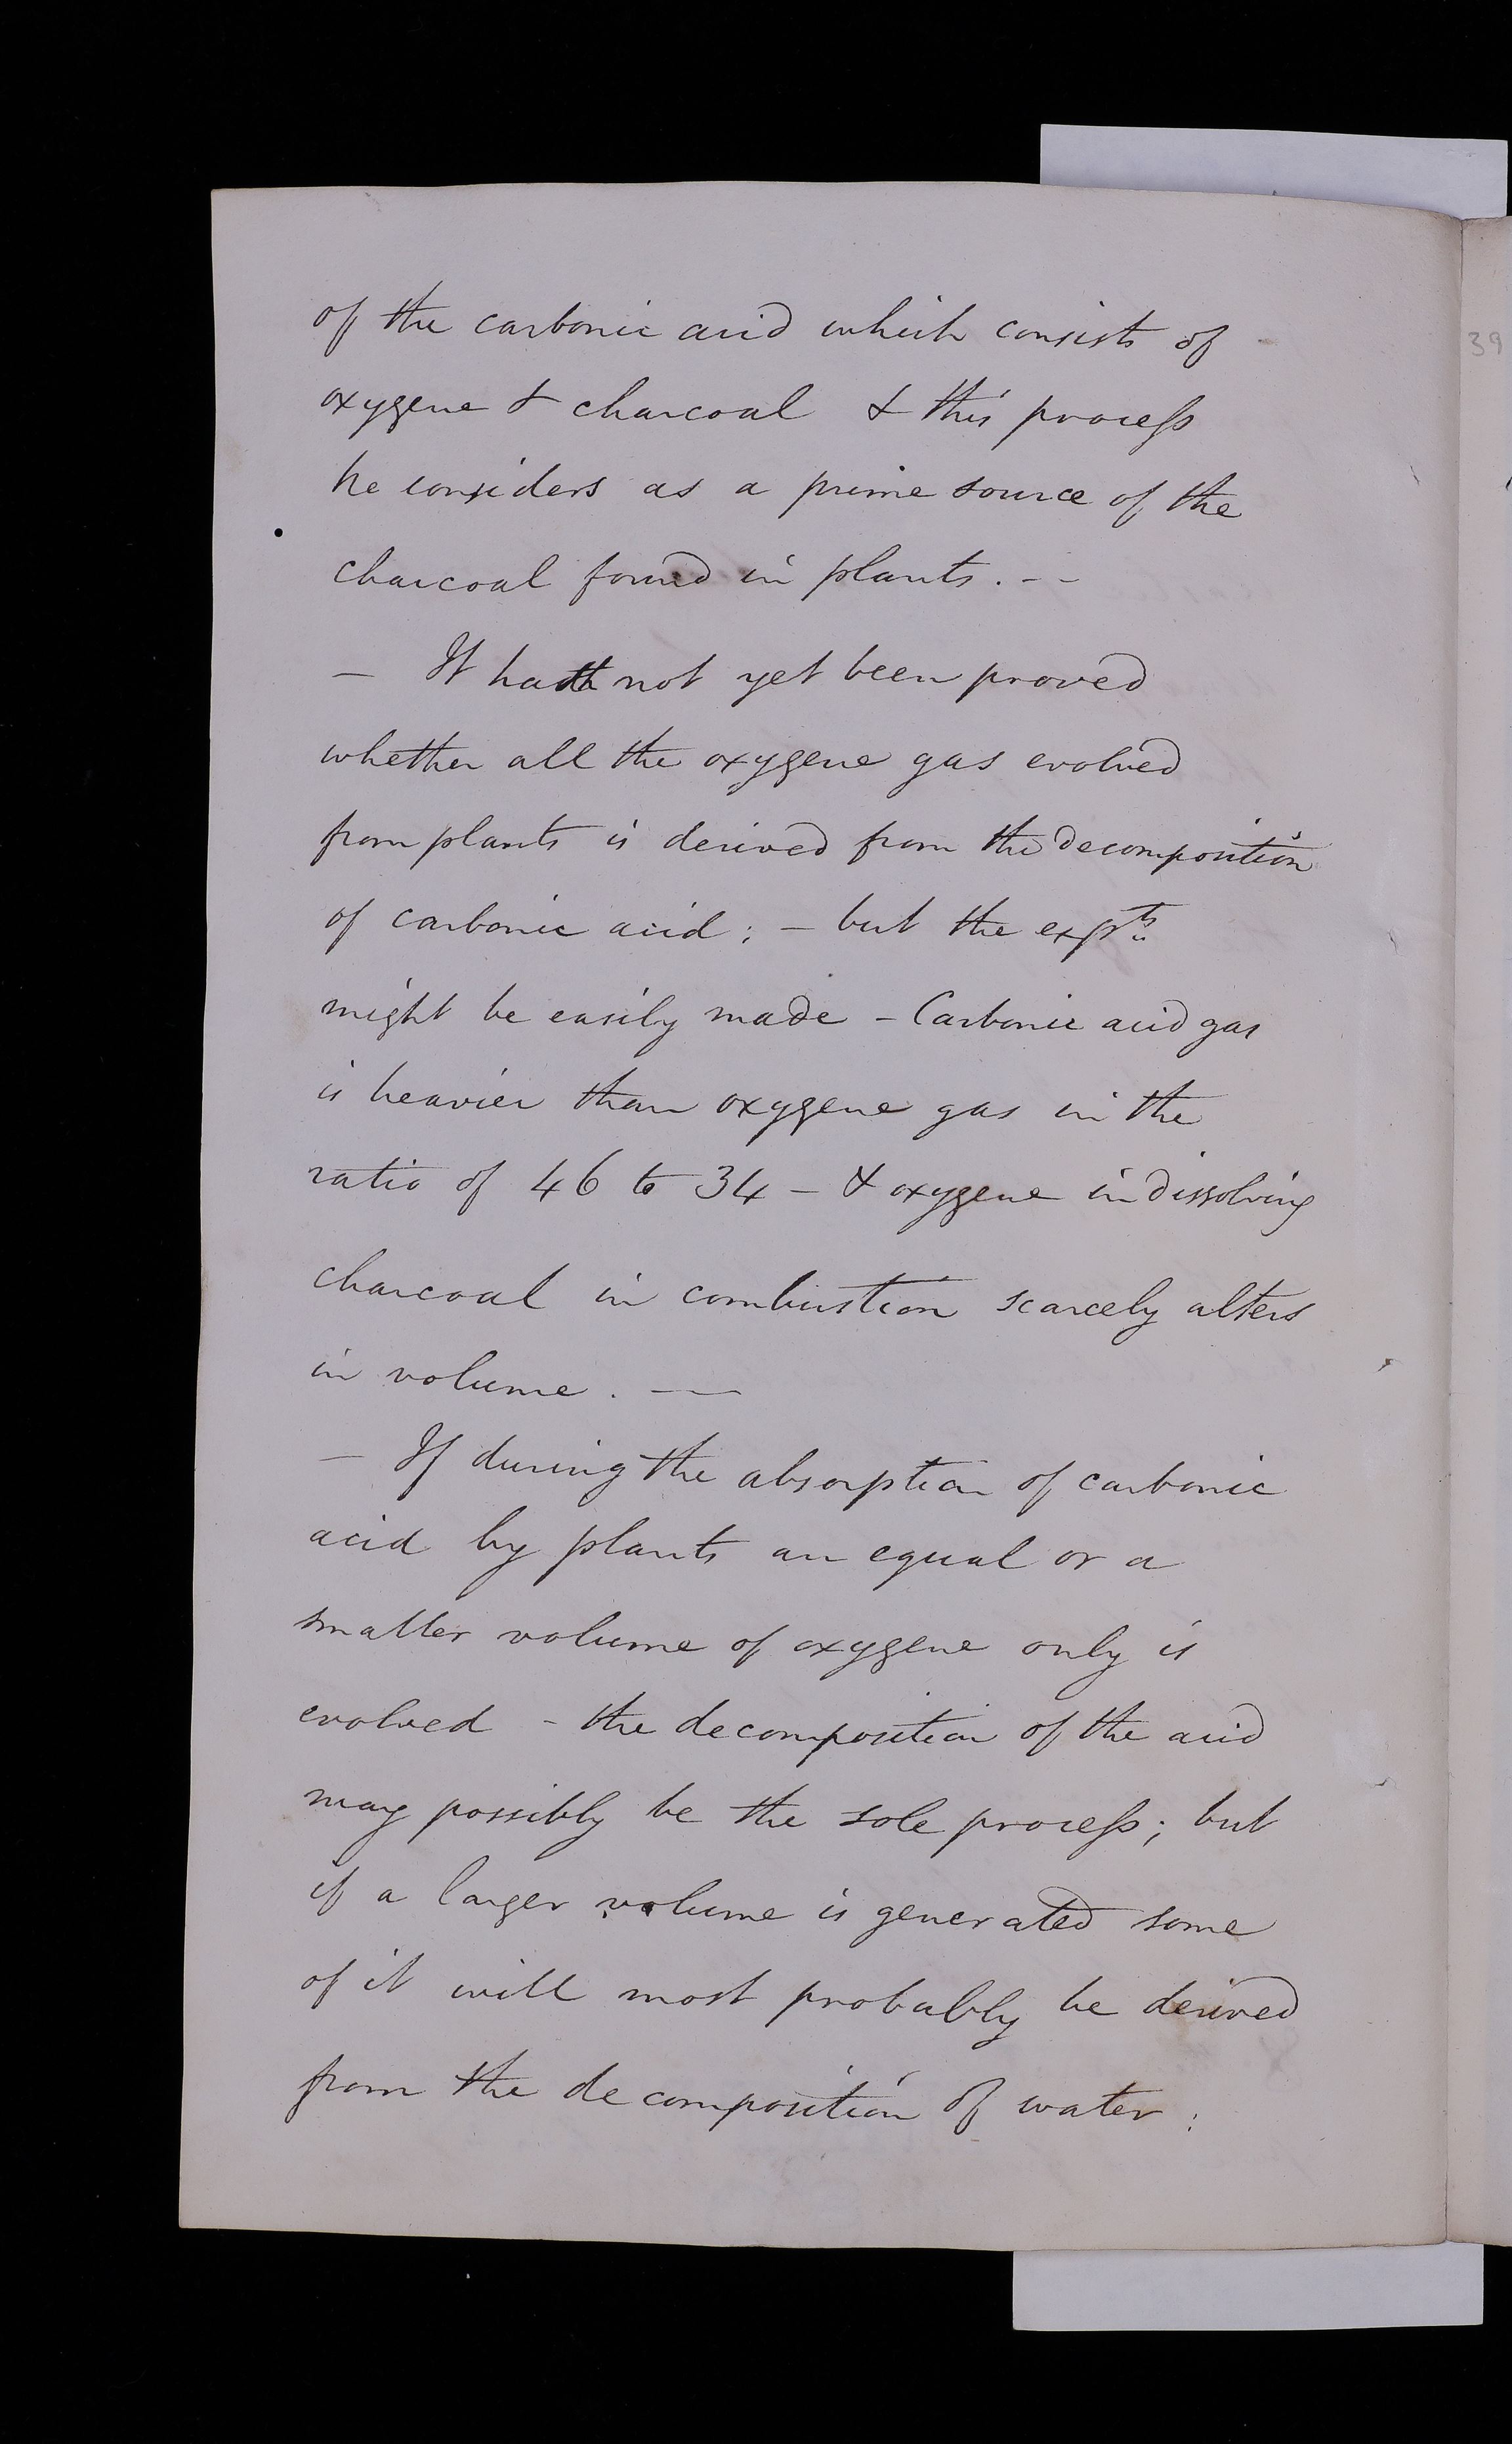 of the carbonic acid which consists of
oxygene & charcoal & this process
he considers as a prime source of the
charcoal found in plants. - -
— It hath not yet been proved
whether all the oxygene gas evolved
from plants is derived from the decomposition
of carbonic acid; - but the expts
might be easily made - Carbonic acid gas
is heavier than oxygene gas in the
ratio of 46 to 34 - & oxygene in dissolving
charcoal in combustion scarcely alters
in volume. —
— If during the absorption of carbonic
acid by plants an equal or a
smaller volume of oxygene only is
evolved - the decomposition of the acid
may possibly be the sole process; but
if a larger volume is generated some
of it will most probably be derived
from the decomposition of water:
39